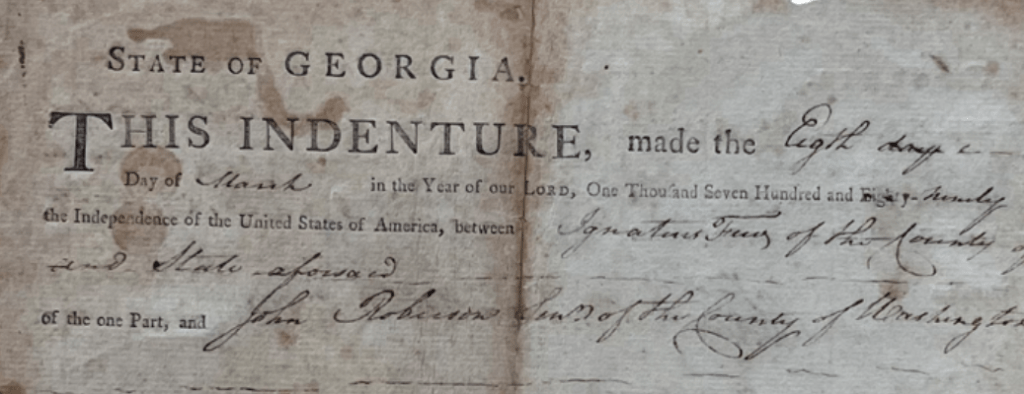 STATE OF GEORGIA.
THIS INDENTURE, made the Eigth
Day of March in the Year of our LORD, One Thousand Seven Hundred and Eighty-ninety
the Independence of the United States of America, between Ignatius Few of the County
and State aforsaid
of the one Part, and John Roberson of the County of Washington